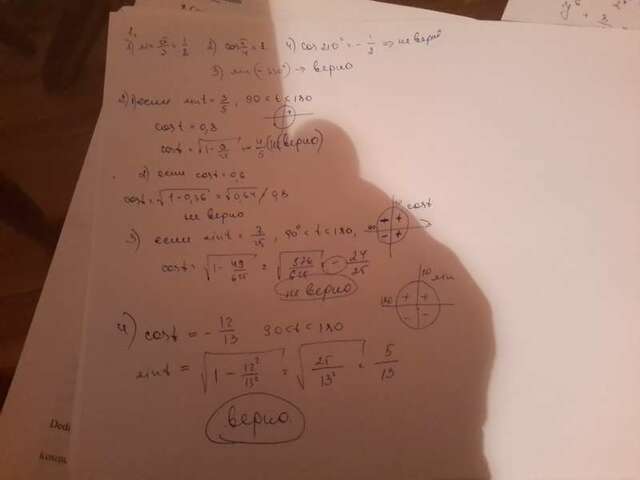 1.
1) sin π/3 = 1/2  2) cos π/4 = 1  4) cos 210° = -1/2 => не верно
3) sin(-330°) -> верно
2) 1) если sin t = 3/5, 90 < t < 180
cos t = 0,8
cos t = √(1 - 9/25) = 4/5 (не верно)
2) если cos t = 0,6
cos t = √(1-0,36) = √0,64 = 0,8
не верно
3) если sin t = 7/25, 90° < t < 180,
cost
cos t = √(1 - 49/625) = √(576/625) = - 24/25
не верно
sin
180
4) cos t = - 12/13  90 < t < 180
sin t = √(1 - 12²/13²) = √(25/13²) = 5/13
верно.
Dodi